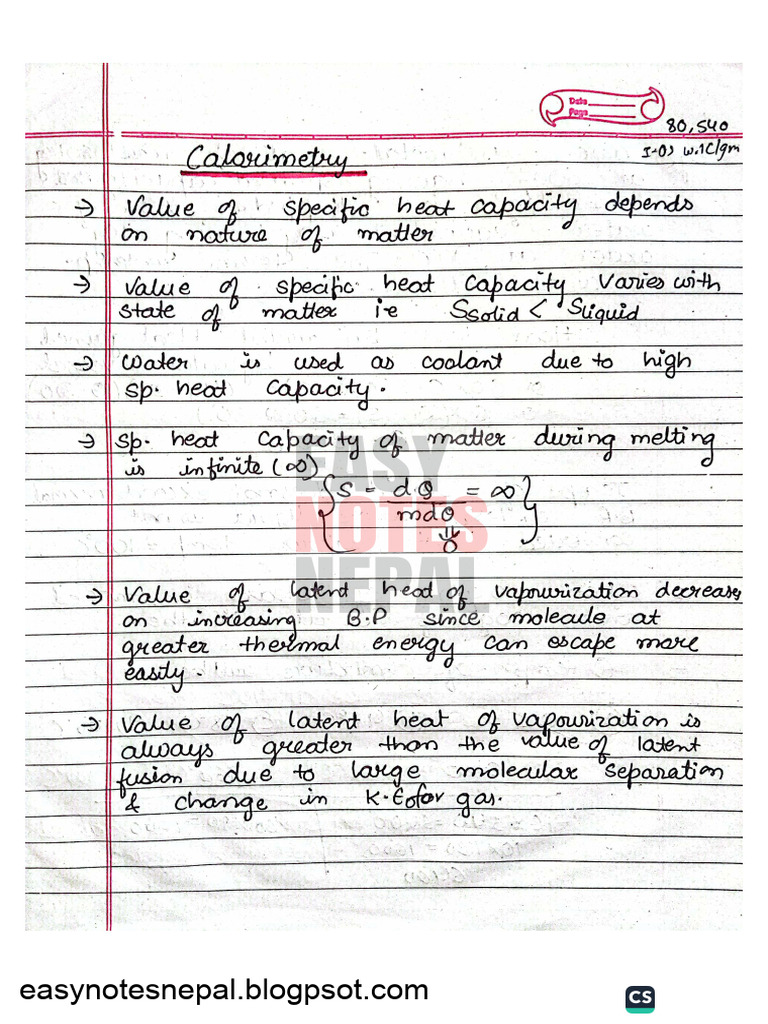 Date
Page
80,540
Calorimetry
→ Value of specific heat capacity depends
on nature of matter
→ Value of specific heat capacity varies with
state of matter i-e Ssolid < Sliquid
→ Water is used as coolant due to high
sp. heat capacity.
→ sp. heat capacity of matter during melting
is infinite (∞)
{ S = dQ/mdθ = ∞ }
⇓
0
→ Value of latent head of vapourization decreases
on increasing B.P since molecule at
greater thermal energy can escape more
easily.
→ Value of latent heat of vapourization is
always greater than the value of latent
fusion due to large molecular separation
& change in K.E of or gas.
EASY
NOTES
NEPAL
easynotesnepal.blogpsot.com
CS